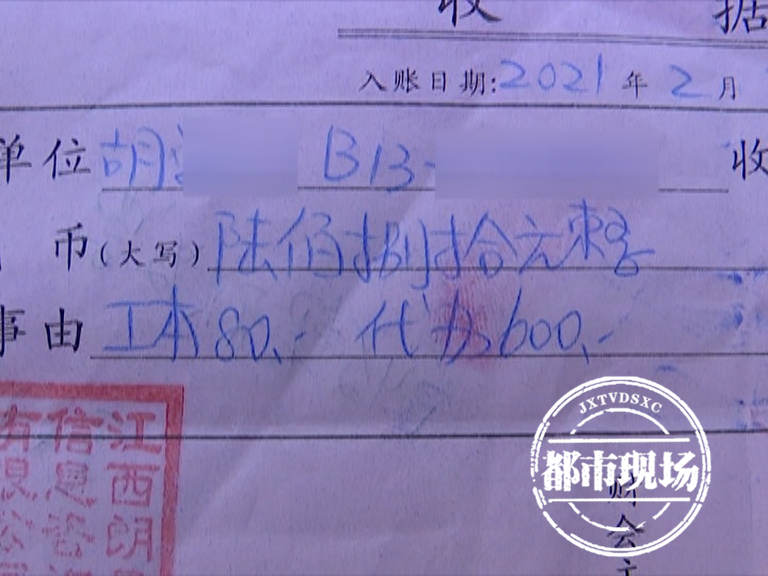 收 据
入账日期:2021年2月
单位 胡 B13- 收
币(大写) 陆佰捌拾元整
事由 工本80.- 代办600.-
江西朗
信息咨
有限公
JXTVDSXC
都市现场
财会主